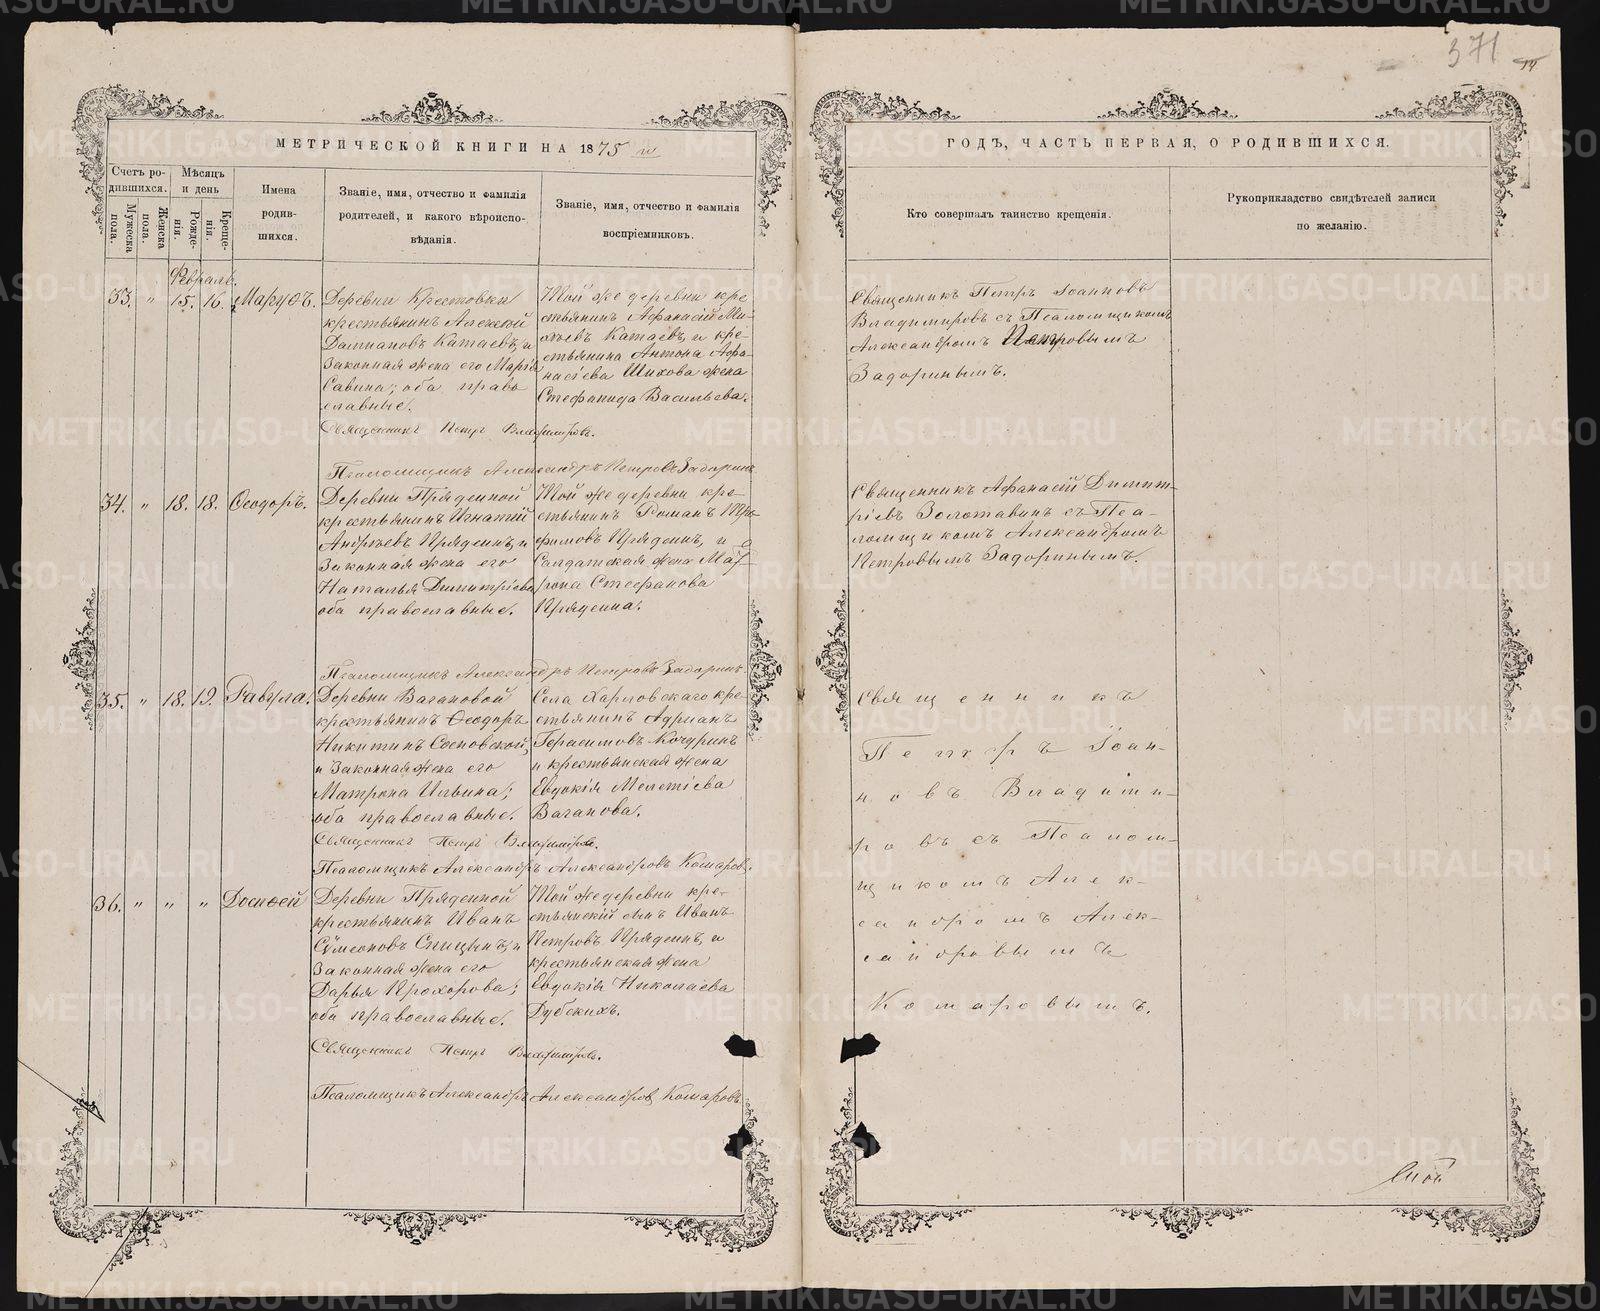 371
14
МЕТРИЧЕСКОЙ КНИГИ НА 1875 й
Счетъ родившихся.
Мужеска пола.
Женска пола.
Мѣсяцъ и день
Рожденія.
Крещенія.
Имена родившихся.
Званіе, имя, отчество и фамилія родителей, и какого вѣроисповѣданія.
Званіе, имя, отчество и фамилія воспріемниковъ.
ГОДЪ, ЧАСТЬ ПЕРВАЯ, О РОДИВШИХСЯ.
Кто совершалъ таинство крещенія.
Рукоприкладство свидѣтелей записи по желанію.
Февраль.
33. " 15. 16. Маруѳъ.
Деревни Крестовки
крестьянинъ Алексѣй
Даміановъ Катаевъ, и
законная жена его Марія
Савина; оба право
славные.
Той же деревни кре
стьянинъ Афанасій Ми-
хѣевъ Катаевъ, и кре-
стьянина Антона Афа-
насіева Шихова жена
Стефанида Васильева.
Священникъ Петръ Іоанновъ
Владимировъ съ Псаломщикомъ
Александромъ Петровымъ
Задоринымъ.
Священникъ Петръ Владимировъ.
Псаломщикъ Александръ Петровъ Задоринъ
34. " 18. 18. Ѳеодоръ.
Деревни Пряденной
крестьянинъ Игнатій
Андреевъ Пряденъ, и
законная жена его
Наталья Димитріева
оба православные.
Той же деревни кре-
стьянинъ Романъ Тро-
фимовъ Пряденъ, и
Салдатская жена Мат
рона Стефанова
Прядена.
Священникъ Афанасій Димит-
ріевъ Золотавинъ съ Пса-
ломщикомъ Александромъ
Петровымъ Задоринымъ.
Псаломщикъ Александръ Петровъ Задоринъ
35. " 18. 19. Равула.
Деревни Вагановой
крестьянинъ Ѳеодоръ
Никитинъ Сосновской,
и законная жена его
Матрона Ильина;
оба православные.
Села Харловскаго кре-
стьянинъ Адрианъ
Герасимовъ Кочуринъ
и крестьянская жена
Евдокія Мелетіева
Ваганова.
Священникъ
Петръ Іоан-
новъ Владими-
ровъ съ Псалом-
щикомъ Алек-
сандромъ Алек-
сандровымъ
Комаровымъ.
Священникъ Петръ Владимировъ.
Псаломщикъ Александръ Александровъ Комаровъ.
36. " " " Досиѳей
Деревни Пряденной
крестьянинъ Иванъ
Сѵмеоновъ Спицынъ, и
законная жена его
Дарья Прохорова;
оба православные.
Той же деревни кре-
стьянскій сынъ Иванъ
Петровъ Пряденъ, и
крестьянская жена
Евдокія Николаева
Дубскихъ.
Священникъ Петръ Владимировъ.
Псаломщикъ Александръ Александровъ Комаровъ
METRIKI.GASO-URAL.RU